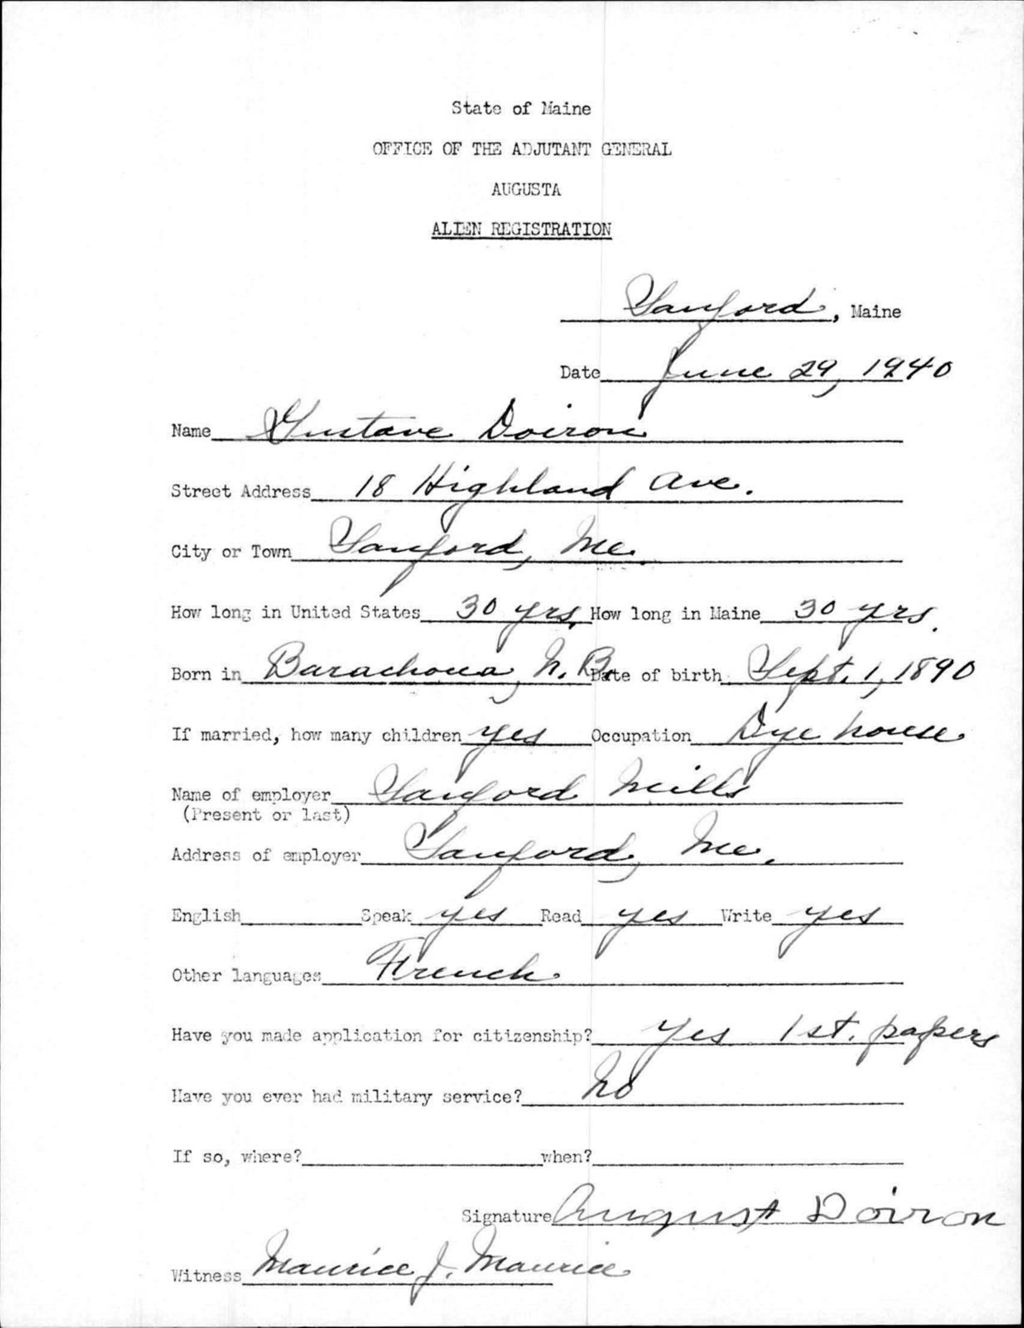 State of Maine
OFFICE OF THE ADJUTANT GENERAL
AUGUSTA
ALIEN REGISTRATION
Sanford, Maine
Date June 29, 1940
Name Gustave Doiron
Street Address 18 Highland Ave.
City or Town Sanford, Me.
How long in United States 30 yrs. How long in Maine 30 yrs.
Born in Barachoua, N.B. Date of birth Sept. 1, 1890
If married, how many children yes Occupation Dye house
Name of employer Sanford Mills
(Present or last)
Address of employer Sanford, Me.
English Speak yes Read yes Write yes
Other languages French.
Have you made application for citizenship? Yes 1st. papers
Have you ever had military service? No
If so, where? when?
Signature August Doiron
Witness Maurice J. Maurice